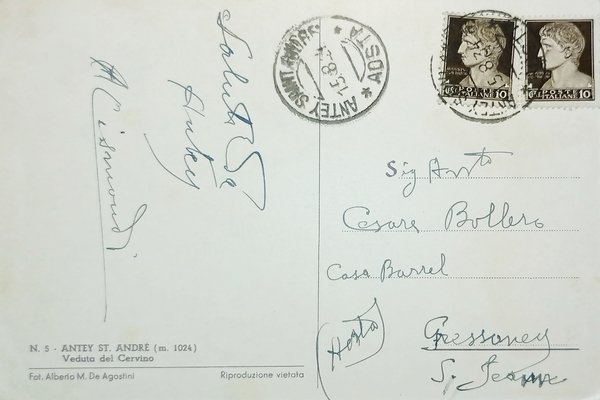 Saluti da
Antey
A Cismondi
ANTEY SAINT ANDRE
* AOSTA *
15.8.
POSTE
ITALIANE
10
POSTE
ITALIANE
10
Sig Avv.to
Cesare Bollero
Casa Barrel
(Aosta)
Gressoney
S. Jean
N. 5 - ANTEY ST. ANDRÉ (m. 1024)
Veduta del Cervino
Fot. Alberto M. De Agostini
Riproduzione vietata